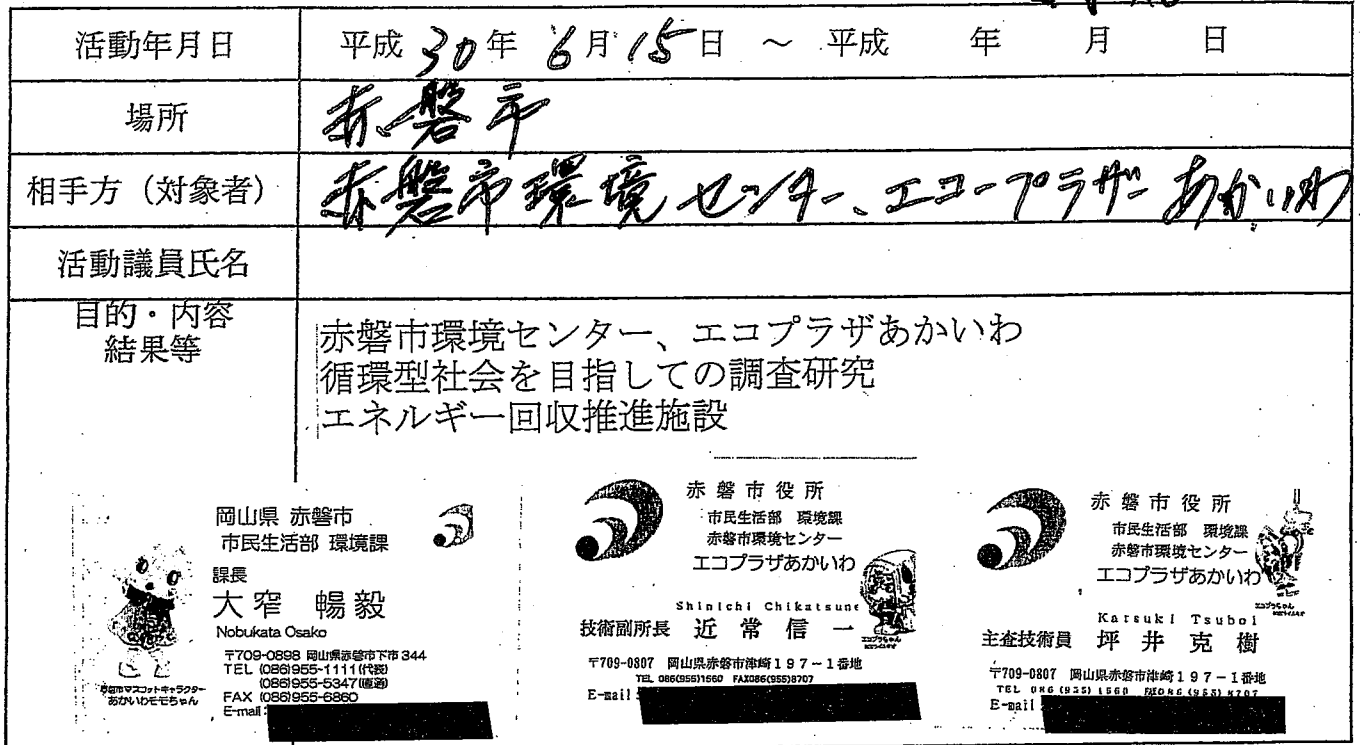 活動年月日 平成30年 6月15日 ～ 平成 年 月 日
場所 赤磐市
相手方（対象者） 赤磐市環境センター、エコープラザーあかいわ
活動議員氏名
目的・内容
結果等
赤磐市環境センター、エコプラザあかいわ
循環型社会を目指しての調査研究
エネルギー回収推進施設
岡山県 赤磐市
市民生活部 環境課
課長
大窄 暢毅
Nobukata Osako
〒709-0898 岡山県赤磐市下市344
TEL (086)955-1111(代表)
(086)955-5347(直通)
FAX (086)955-6860
E-mail:
赤磐市マスコットキャラクター
あかいわモモちゃん
赤磐市役所
市民生活部 環境課
赤磐市環境センター
エコプラザあかいわ
Shinichi Chikatsune
技術副所長 近常信一
〒709-0807 岡山県赤磐市津崎197-1番地
TEL 086(955)1560 FAX086(955)8707
E-mail:
赤磐市役所
市民生活部 環境課
赤磐市環境センター
エコプラザあかいわ
エコプラちゃん
Katsuki Tsuboi
主査技術員 坪井克樹
〒709-0807 岡山県赤磐市津崎197-1番地
TEL 086(955)1560 FAX086(955)8707
E-mail: